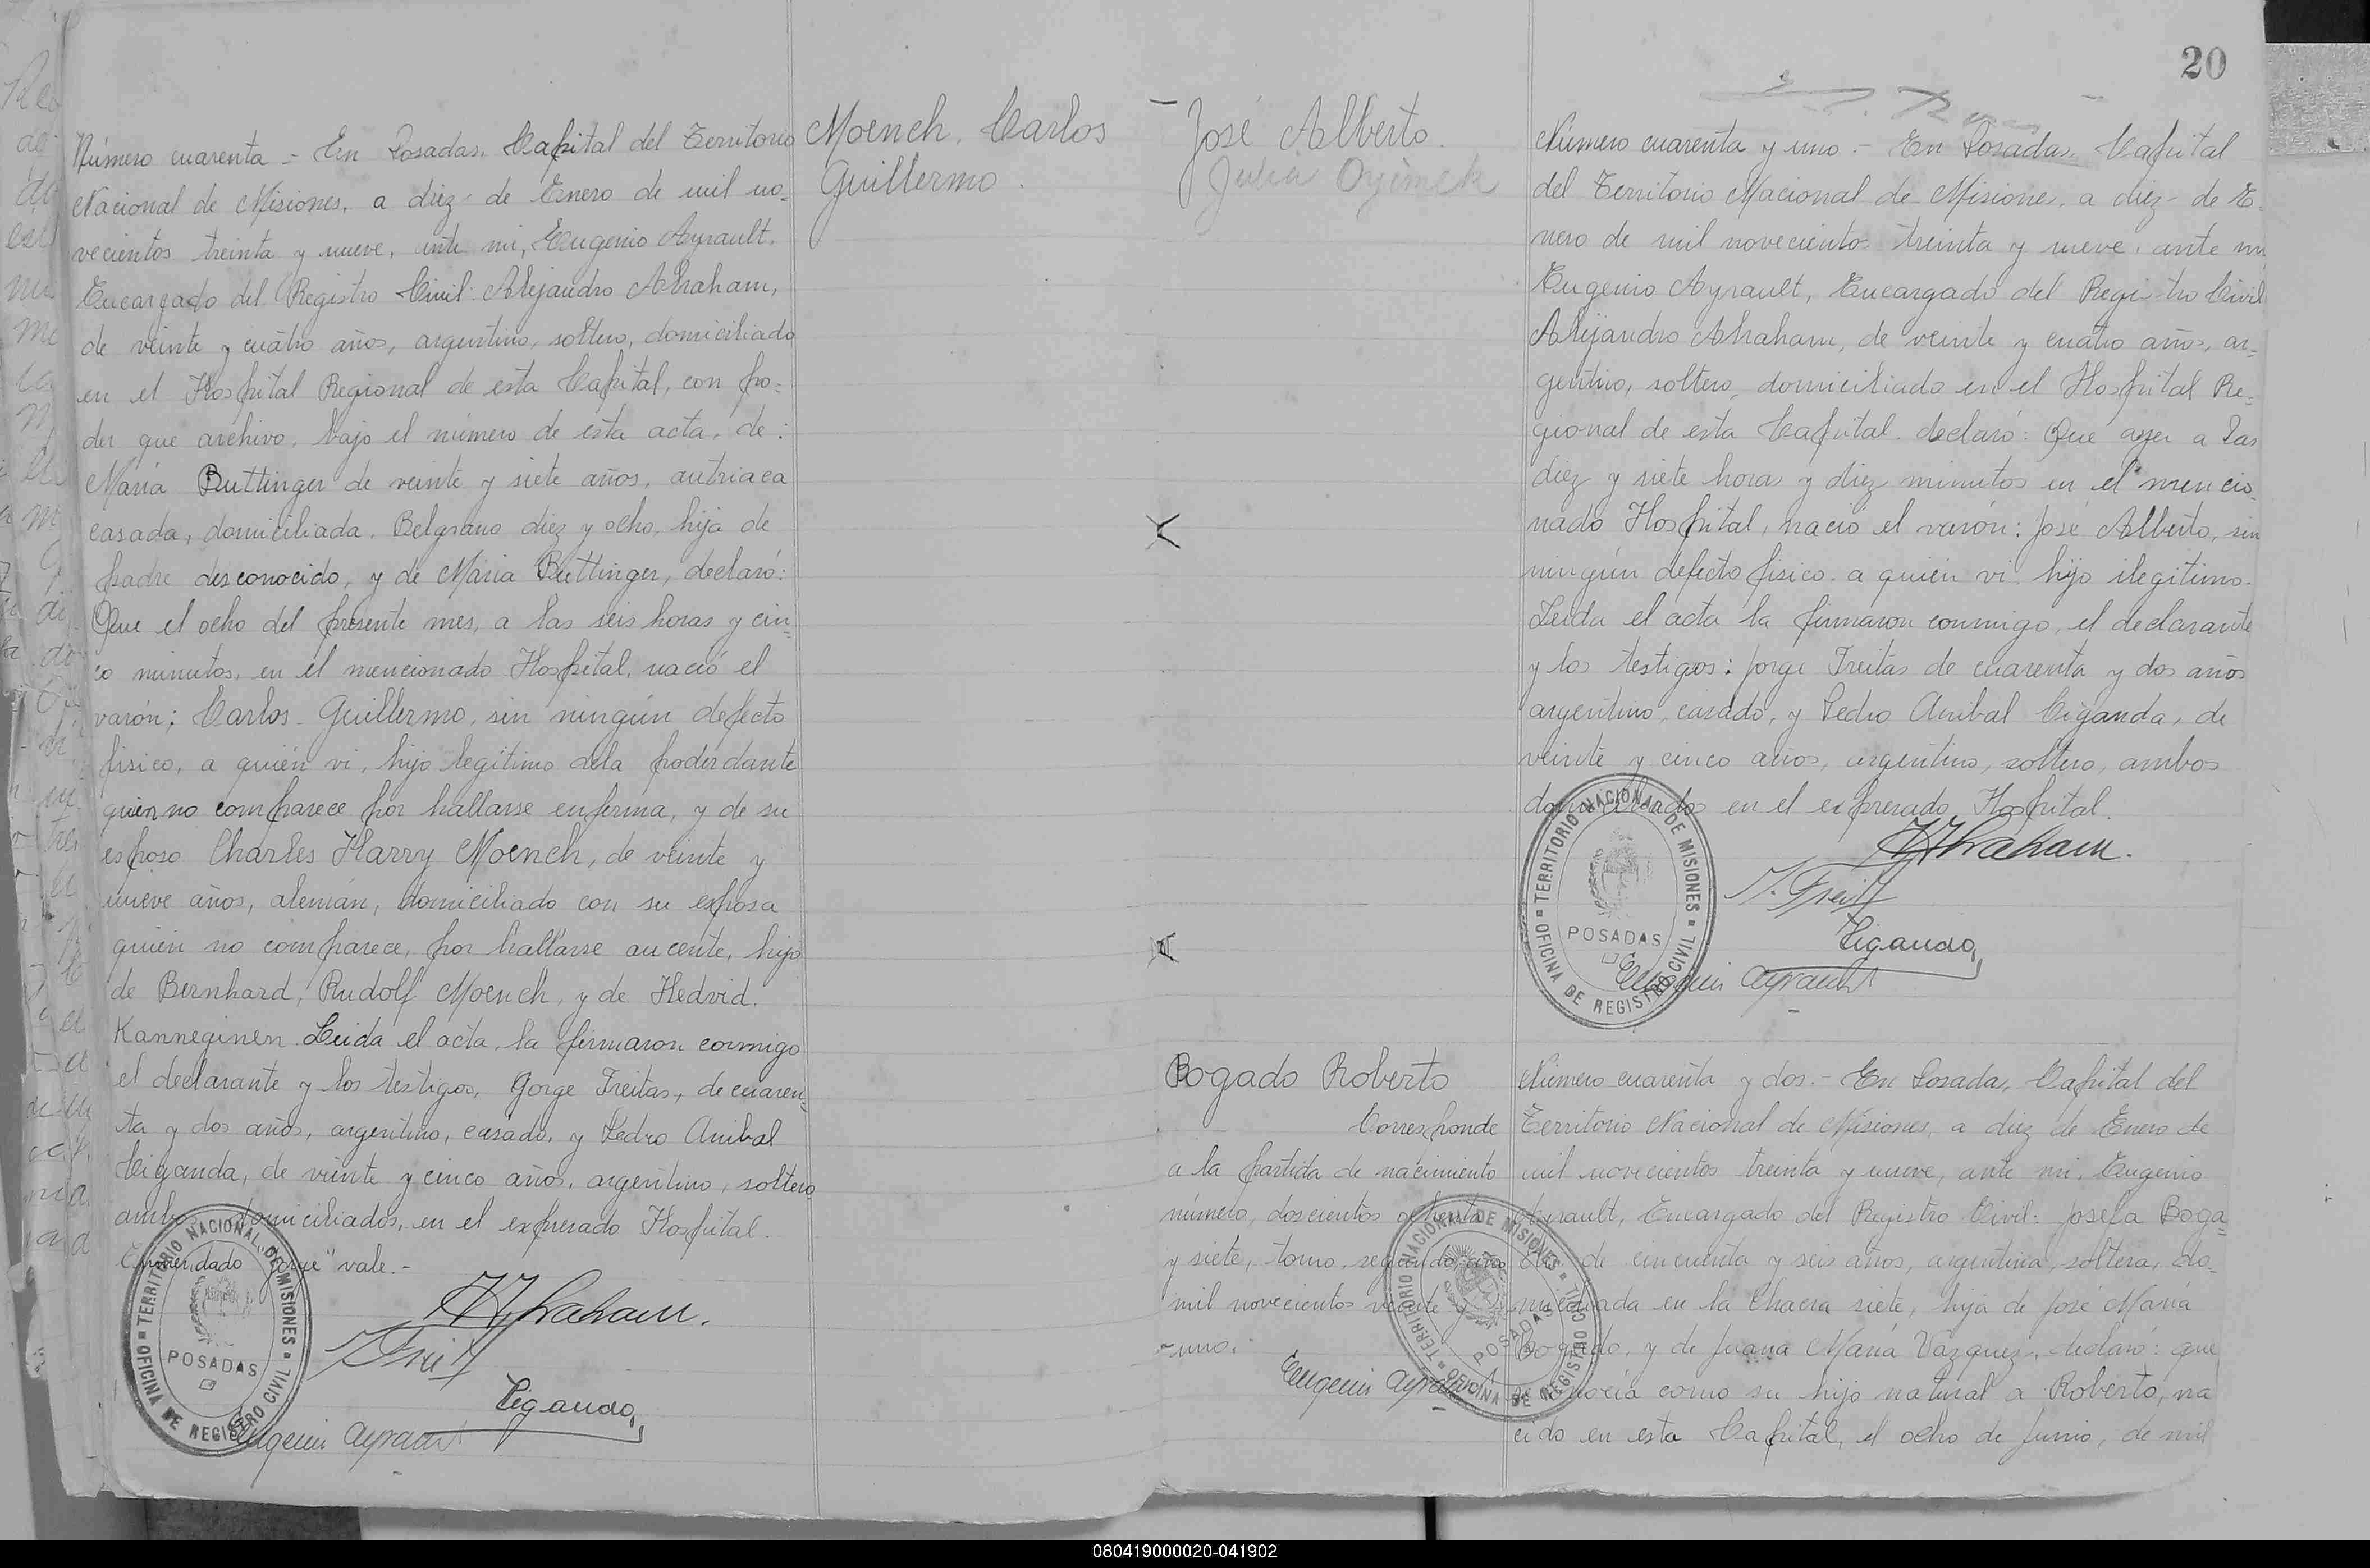 Moench, Carlos
Guillermo.
Número cuarenta - En Posadas, Capital del Territorio
Nacional de Misiones, a diez de Enero de mil no-
vecientos treinta y nueve, ante mi, Eugenio Ayrault,
Encargado del Registro Civil: Alejandro Abraham,
de veinte y cuatro años, argentino, soltero, domiciliado
en el Hospital Regional de esta Capital, con po-
der que archivo, bajo el número de esta acta, de:
María Buttinger de veinte y siete años, autriaca
casada, domiciliada, Belgrano diez y ocho, hija de
padre desconocido, y de María Buttinger, declaró:
Que el ocho del presente mes, a las seis horas y cin-
co minutos, en el mencionado Hospital, nació el
varón; Carlos Guillermo, sin ningún defecto
fisico, a quién vi, hijo legitimo dela poderdante
quien no comparece por hallarse enferma, y de su
esposo Charles Harry Moench, de veinte y
nueve años, alemán, domiciliado con su esposa
quién no comparece, por hallarse aucente, hijo
de Bernhard, Rudolf Moench, y de Hedvid.
Kanneginen. Leida el acta, la firmaron conmigo
el declarante y los testigos, Gorge Freitas, de cuaren-
ta y dos años, argentino, casado, y Pedro Anibal
Ciganda, de veinte y cinco años, argentino, soltero
ambos domiciliados, en el expresado Hospital.
Enmendado "Jorge" vale.-
Abraham.
J. Freit
Ciganda
Eugenio Ayrault
TERRITORIO NACIONAL DE MISIONES
POSADAS
OFICINA DE REGISTRO CIVIL
20
José Alberto.
Julia
Número cuarenta y uno.- En Posadas, Capital
del Territorio Nacional de Misiones, a diez- de E-
nero de mil novecientos treinta y nueve, ante mi
Eugenio Ayrault, Encargado del Registro Civil
Alejandro Abraham, de veinte y cuatro años, ar-
gentino, soltero, domiciliado en el Hospital Re-
gional de esta Capital, declaró: Que ayer a las
diez y siete horas y diez minutos en el mencio-
nado Hospital, nació el varón: José Alberto, sin
ningún defecto fisico, a quién vi, hijo ilegitimo.
Leida el acta la firmaron conmigo, el declarante
y los testigos: Jorge Freitas de cuarenta y dos años
argentino, casado, y Pedro Anibal Ciganda, de
veinte y cinco años, argentino, soltero, ambos
domiciliados en el expresado Hospital.
Abraham.
J. Freit
Ciganda
Eugenio Ayrault
TERRITORIO NACIONAL DE MISIONES
POSADAS
OFICINA DE REGISTRO CIVIL
Bogado Roberto
Corresponde
a la partida de nacimiento
número, doscientos ochenta
y siete, tomo, segundo, año
mil novecientos veinte y
uno.
Eugenio Ayrault
TERRITORIO NACIONAL DE MISIONES
POSADAS
OFICINA DE REGISTRO CIVIL
Número cuarenta y dos.- En Posadas, Capital del
Territorio Nacional de Misiones, a diez de Enero de
mil novecientos treinta y nueve, ante mi, Eugenio
Ayrault, Encargado del Registro Civil: Josefa Boga-
do, de cincuenta y seis años, argentina, soltera, do-
miciliada en la Chacra siete, hija de José María
Bogado, y de Juana María Vazquez, declaró: que
reconocía como su hijo natural a Roberto, na
cido en esta Capital, el ocho de Junio, de mil
080419000020-041902